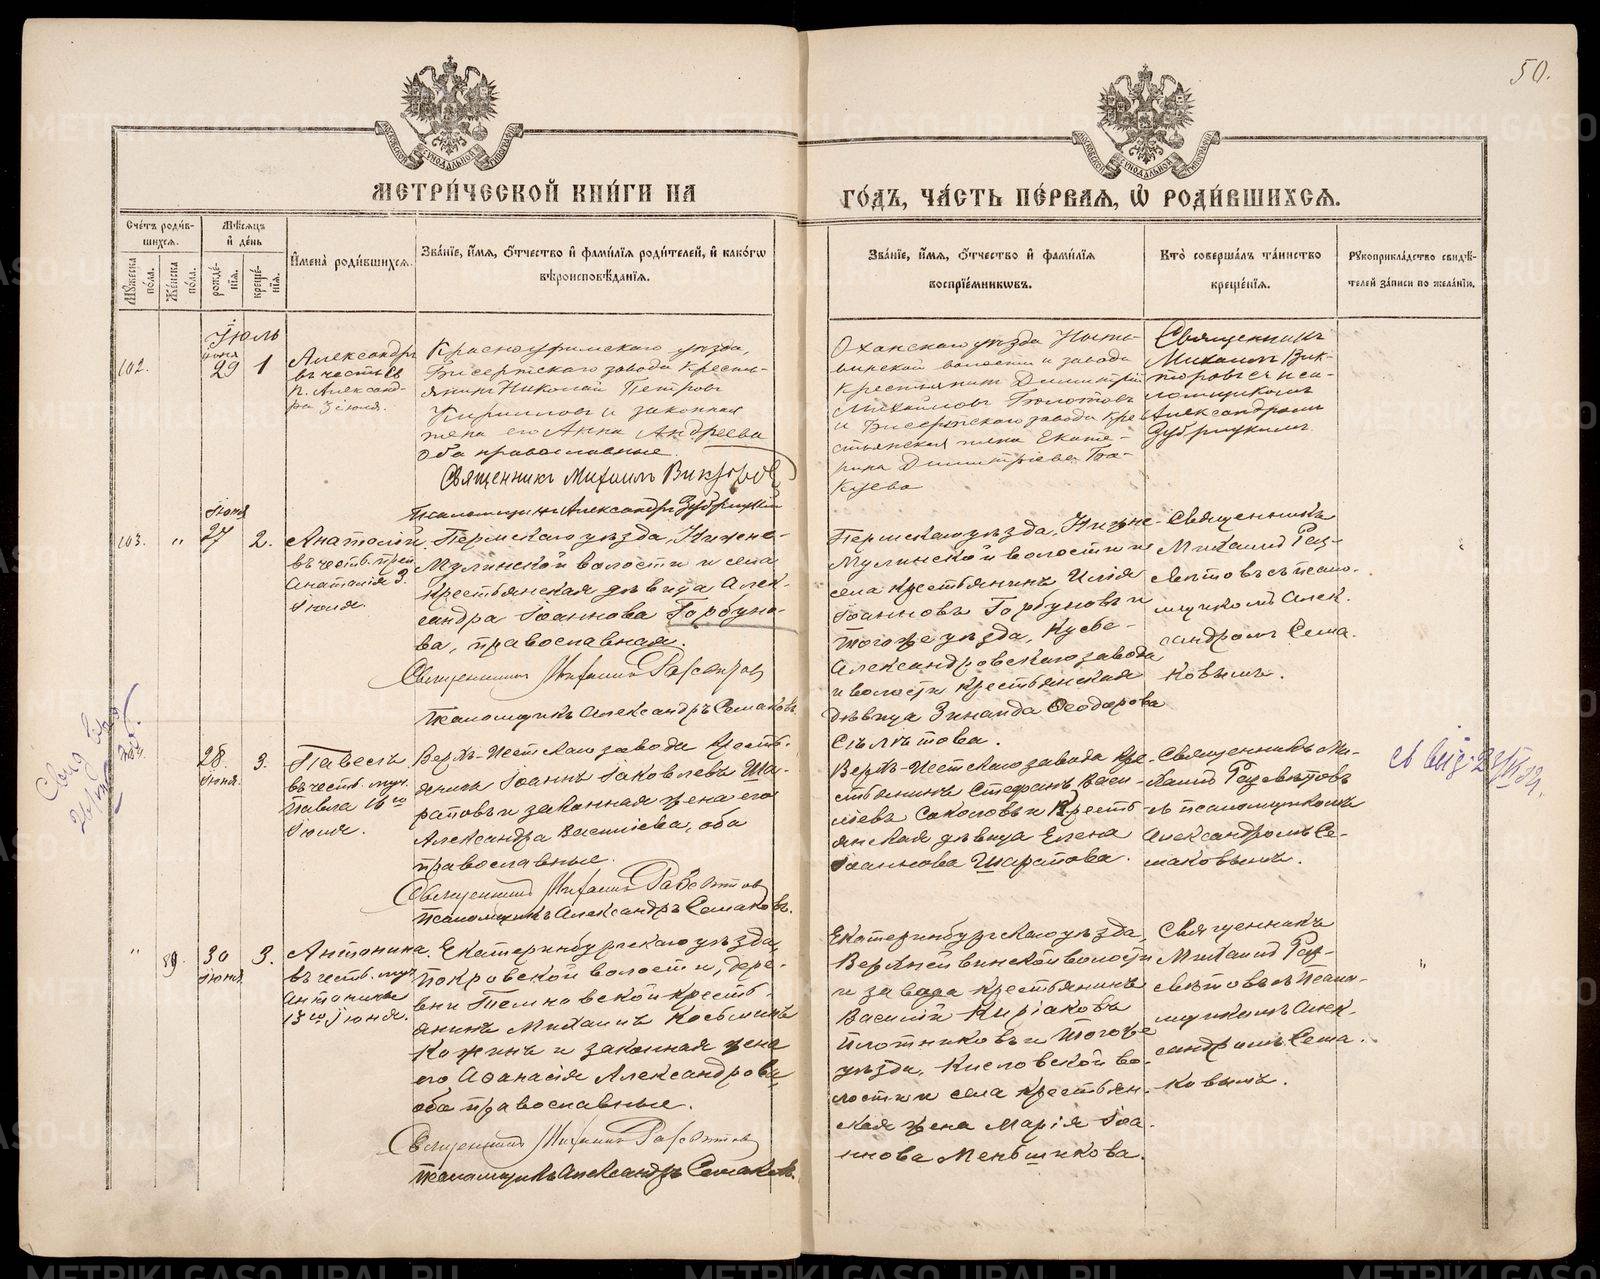 50.
МЕТРИ́ЧЕСКОЙ КНИ́ГИ НА
ГО́ДЪ, ЧА́СТЬ ПЕ́РВАЯ, Ѡ РОДИ́ВШИХСЯ.
Сче́тъ роди́в-
шихся.
Му́жеска по́ла.
Же́нска по́ла.
Мѣ́сяцъ
и де́нь
рожде́-
нїя.
креще́-
нїя.
И҆мена̀ роди́вшихся.
Зва́нїе, и҆́мя, о҆́тчество и҆ фами́лїя роди́телей, и҆ како́гѡ
вѣроисповѣ́данїя.
Зва́нїе, и҆́мя, о҆́тчество и҆ фами́лїя
воспрїе́мникѡвъ.
Кто̀ соверша́лъ та́инство
креще́нїя.
Рꙋкоприкла́дство свидѣ́-
телей за́писи по жела́нїю.
Іюль
102.
Іюня
29
1
Александръ
въ честь Св
к. Александ-
ра 3 іюля.
Красноуфимскаго уѣзда,
Бисертскаго завода кресть-
янинъ Николай Петровъ
Кирилловъ и законная
жена его Анна Андреева
оба православные.
Священникъ Михаилъ Викторовъ
Псаломщикъ Александръ Зубрицкій
Оханскаго уѣзда Ныт-
винской волости и завода
крестьянинъ Димитрій
Михайловъ Болотовъ
и Бисертскаго завода кре-
стьянская жена Екате-
рина Димитріева
Священникъ
Михаилъ Вик-
торовъ съ пса-
ломщикомъ
Александромъ
Зубрицкимъ.
103.
"
Іюня
27
2.
Анатолій
въ честь преп
Анатолія 3.
Іюля.
Пермскаго уѣзда, Нижне-
Муллинской волости и села
крестьянская дѣвица Алек-
сандра Іоаннова Горбуно-
ва, православная.
Священникъ Михаилъ Разсвѣтовъ
Псаломщикъ Александръ Семаковъ
Пермскаго уѣзда, Нижне-
Муллинской волости и
села крестьянинъ Илія
Іоанновъ Горбуновъ и
тогоже уѣзда, Кусье-
Александровскаго завода
и волости крестьянская
дѣвица Зинаида Ѳеодорова
Священникъ
Михаилъ Раз-
свѣтовъ съ псало-
мщикомъ Алек-
сандромъ Сема-
ковымъ.
28.
Іюня.
3.
Павелъ
въ честь муч.
Павла 16го
Іюля.
Верхъ-Исетскаго завода кресть-
янинъ Іоаннъ Іаковлевъ Ша-
раповъ и законная жена его
Александра Василіева, оба
православные.
Священникъ Михаилъ Разсвѣтовъ
Псаломщикъ Александръ Семаковъ.
Верхъ-Исетскаго завода кре-
стьянинъ Стефанъ Васи-
ліевъ Соколовъ и кресть-
янская дѣвица Елена
Іоаннова Шарапова.
Священникъ Ми-
хаилъ Разсвѣтовъ
съ псаломщикомъ
Александромъ Се-
маковымъ.
"
89.
30
Іюня
3.
Антонина.
въ честь муч
Антонины
13го Іюня.
Екатеринбургскаго уѣзда,
Покровской волости, дере-
вни Темновской кресть-
янинъ Михаилъ Косьминъ
Кожинъ и законная жена
его Аѳанасія Александрова,
оба православные.
Священникъ Михаилъ Разсвѣтовъ
Псаломщикъ Александръ Семаковъ.
Екатеринбургскаго уѣзда,
Верхнейвинской волости
и завода крестьянинъ
Василій Киріаковъ
Плотниковъ и тогоже
уѣзда, Кисловской во-
лости и села крестьян-
ская жена Марія Іоа-
ннова Меньшикова.
Священникъ
Михаилъ Раз-
свѣтовъ съ псало-
мщикомъ Алек-
сандромъ Сема-
ковымъ.
"